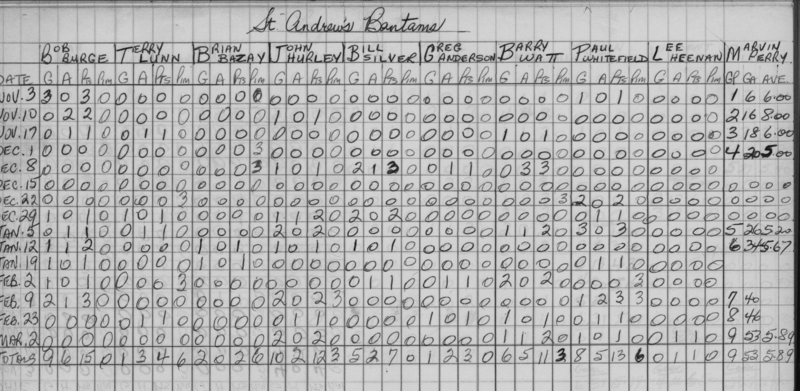 St. Andrew's Bantams
BOB BURGE TERRY LUNN BRIAN BAZAY JOHN HURLEY BILL SILVER GREG ANDERSON BARRY WATT PAUL WHITEFIELD LEE HEENAN MARVIN PERRY
DATE G A Pts Pim G A Pts Pim G A Pts Pim G A Pts Pim G A Pts Pim G A Pts Pim G A Pts Pim G A Pts Pim G A Pts Pim GP GA AVE.
NOV. 3 3 0 3 0 0 0 0 0 0 0 0 0 0 0 0 0 0 0 0 0 0 0 0 0 0 0 0 0 1 0 1 0 0 0 0 0 1 6 6.00
NOV. 10 0 2 2 0 0 0 0 0 0 0 0 0 1 0 1 0 0 0 0 0 0 0 0 0 0 0 0 0 0 0 0 0 0 0 0 0 2 16 8.00
NOV. 17 0 1 1 0 0 1 1 0 0 0 0 0 0 0 0 0 0 0 0 0 0 0 0 0 1 0 1 0 0 0 0 0 0 0 0 0 3 18 6.00
DEC. 1 0 0 0 0 0 0 0 0 0 0 0 3 0 0 0 0 0 0 0 0 0 0 0 0 0 0 0 0 0 0 0 0 0 0 0 0 4 20 5.00
DEC. 8 0 0 0 0 0 0 0 0 0 0 0 3 1 0 1 0 2 1 3 0 0 1 1 0 0 3 3 0 0 0 0 0 0 0 0 0
DEC. 15 0 0 0 0 0 0 0 0 0 0 0 0 0 0 0 0 0 0 0 0 0 0 0 0 0 0 0 0 0 0 0 0 0 0 0 0 0 0 0
DEC. 22 0 0 0 0 0 0 0 3 0 0 0 0 0 0 0 0 0 0 0 0 0 0 0 0 0 0 0 3 2 0 2 0 0 0 0 0 0 0 0
DEC. 29 1 0 1 0 1 0 1 0 0 0 0 0 1 1 2 0 2 0 2 0 0 0 0 0 0 0 0 0 0 1 1 0 0 0 0 0 0 0 0
JAN. 5 0 1 1 0 0 1 1 0 0 0 0 0 2 0 2 0 0 0 0 0 0 0 0 0 1 1 2 0 3 0 3 0 0 0 0 0 5 26 5.20
JAN. 12 1 1 2 0 0 0 0 0 1 0 1 0 1 0 1 0 1 0 1 0 0 0 0 0 0 0 0 0 0 0 0 0 0 0 0 0 6 34 5.67
JAN. 19 1 0 1 0 0 0 0 0 1 0 1 0 0 0 0 0 0 0 0 0 0 0 0 0 0 0 0 0 0 1 1 0 0 0 0 0
FEB. 2 1 0 1 0 0 0 0 3 0 0 0 0 0 0 0 0 0 1 1 0 0 1 1 0 2 0 2 0 0 0 0 3 0 0 0 0
FEB. 9 2 1 3 0 0 0 0 0 0 0 0 0 2 0 2 3 0 0 0 0 0 0 0 0 0 0 0 0 1 2 3 3 0 0 0 0 7 40
FEB. 23 0 0 0 0 0 1 1 0 0 0 0 0 0 1 1 0 0 0 0 0 1 0 1 0 1 0 1 0 0 1 1 0 0 0 0 0 8 46
MAR. 2 0 0 0 0 0 0 0 0 0 0 0 0 2 0 2 0 0 0 0 0 0 0 0 0 1 1 2 0 1 0 1 0 0 1 1 0 9 53 5.89
TOTALS 9 6 15 0 1 3 4 6 2 0 2 6 10 2 12 3 5 2 7 0 1 2 3 0 6 5 11 3 8 5 13 6 0 1 1 0 9 53 5.89